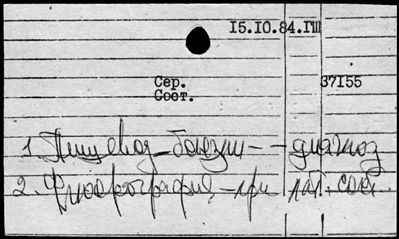 15.10.84.ГШ
Сер. 37155
Сост.
1. Пищевод - болезни - диагноз
2. Флюорография - при пат. сост.